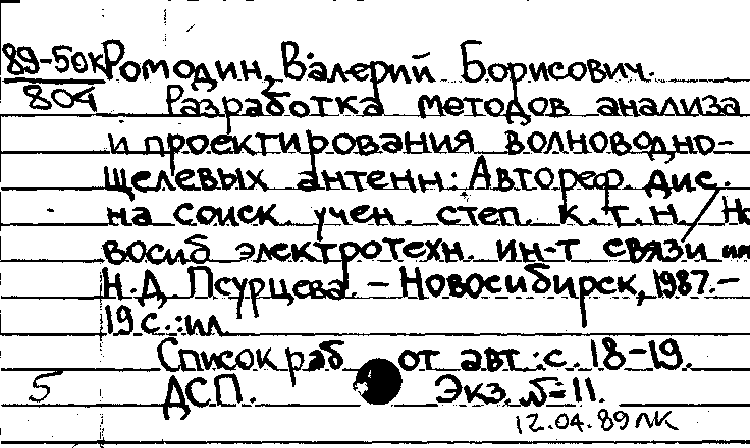 89-50к Ромодин, Валерий Борисович.
804 Разработка методов анализа
и проектирования волноводно-
щелевых антенн: Автореф. дис.
на соиск. учен. степ. к.т.н. / Но
восиб электротехн. ин-т связи им
Н.Д. Псурцева. – Новосибирск, 1987. –
19 с.: ил.
Список раб от авт.: с. 18-19.
5 ДСП. Экз. № 11.
12.04.89 ЛК